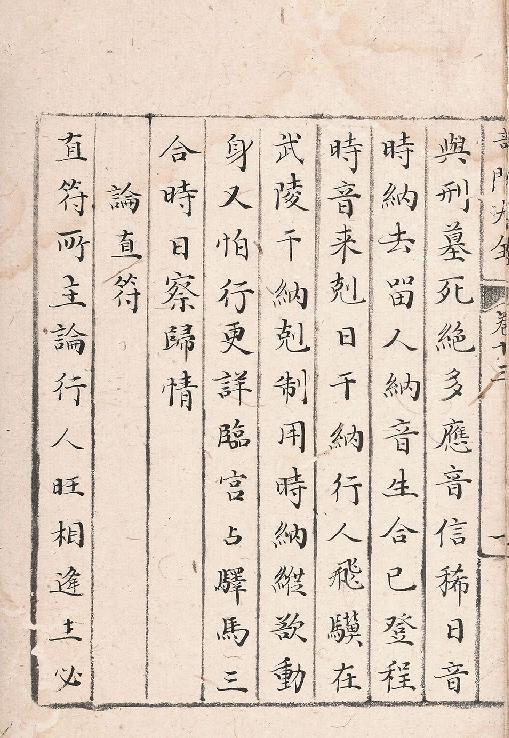 卷十三
一
與刑墓死絶多應音信稀日音
時納去留人納音生合已登程
時音来剋日干納行人飛驥在
武陵干納剋制用時納縱欲動
身又怕行更詳臨宫占驛馬三
合時日察歸情
論直符
直符所主論行人旺相逢土必